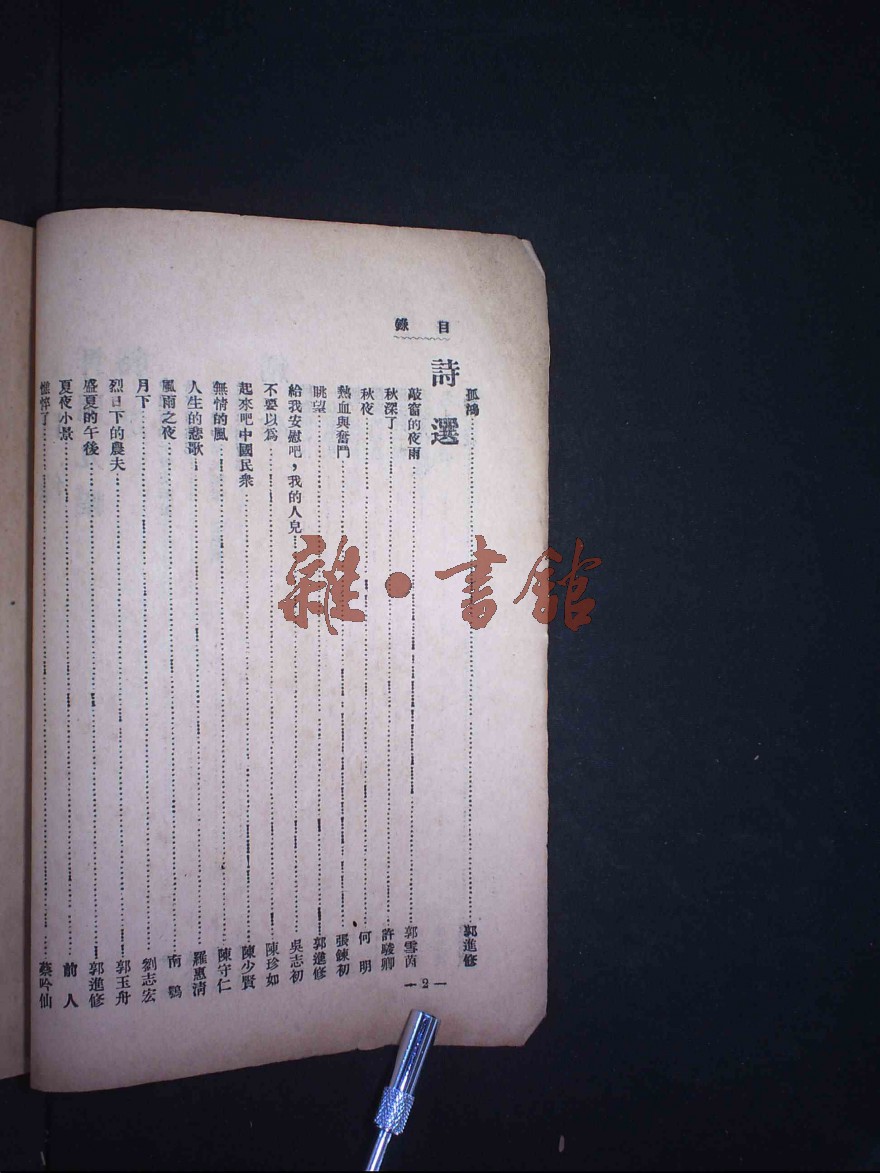 目錄
孤鴻 郭進修
詩選
敲窗的夜雨 郭雪茵
秋深了 許駿卿
秋夜 何明
熱血與奮鬥 張鍊初
眺望 郭進修
給我安慰吧，我的人兒 吳志初
不要以爲 陳珍如
起來吧中國民衆 陳少賢
無情的風 陳守仁
人生的悲歌 羅惠清
風雨之夜 南鶚
月下 劉志宏
烈日下的農夫 郭玉舟
盛夏的午後 郭進修
夏夜小景 前人
憔悴了 蔡吟仙
—2—
雜·書館